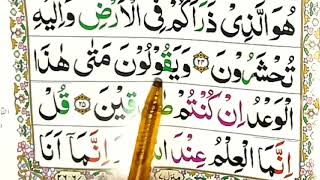 هُوَ الَّذِیْ ذَرَاَكُمْ فِی الْاَرْضِ وَاِلَیْهِ
تُحْشَرُوْنَ ﴿۲۴﴾ وَیَقُوْلُوْنَ مَتٰی هٰذَا
الْوَعْدُ اِنْ كُنْتُمْ صٰدِقِیْنَ ﴿۲۵﴾ قُلْ
اِنَّمَا الْعِلْمُ عِنْدَ اِنَّمَاۤ اَنَا